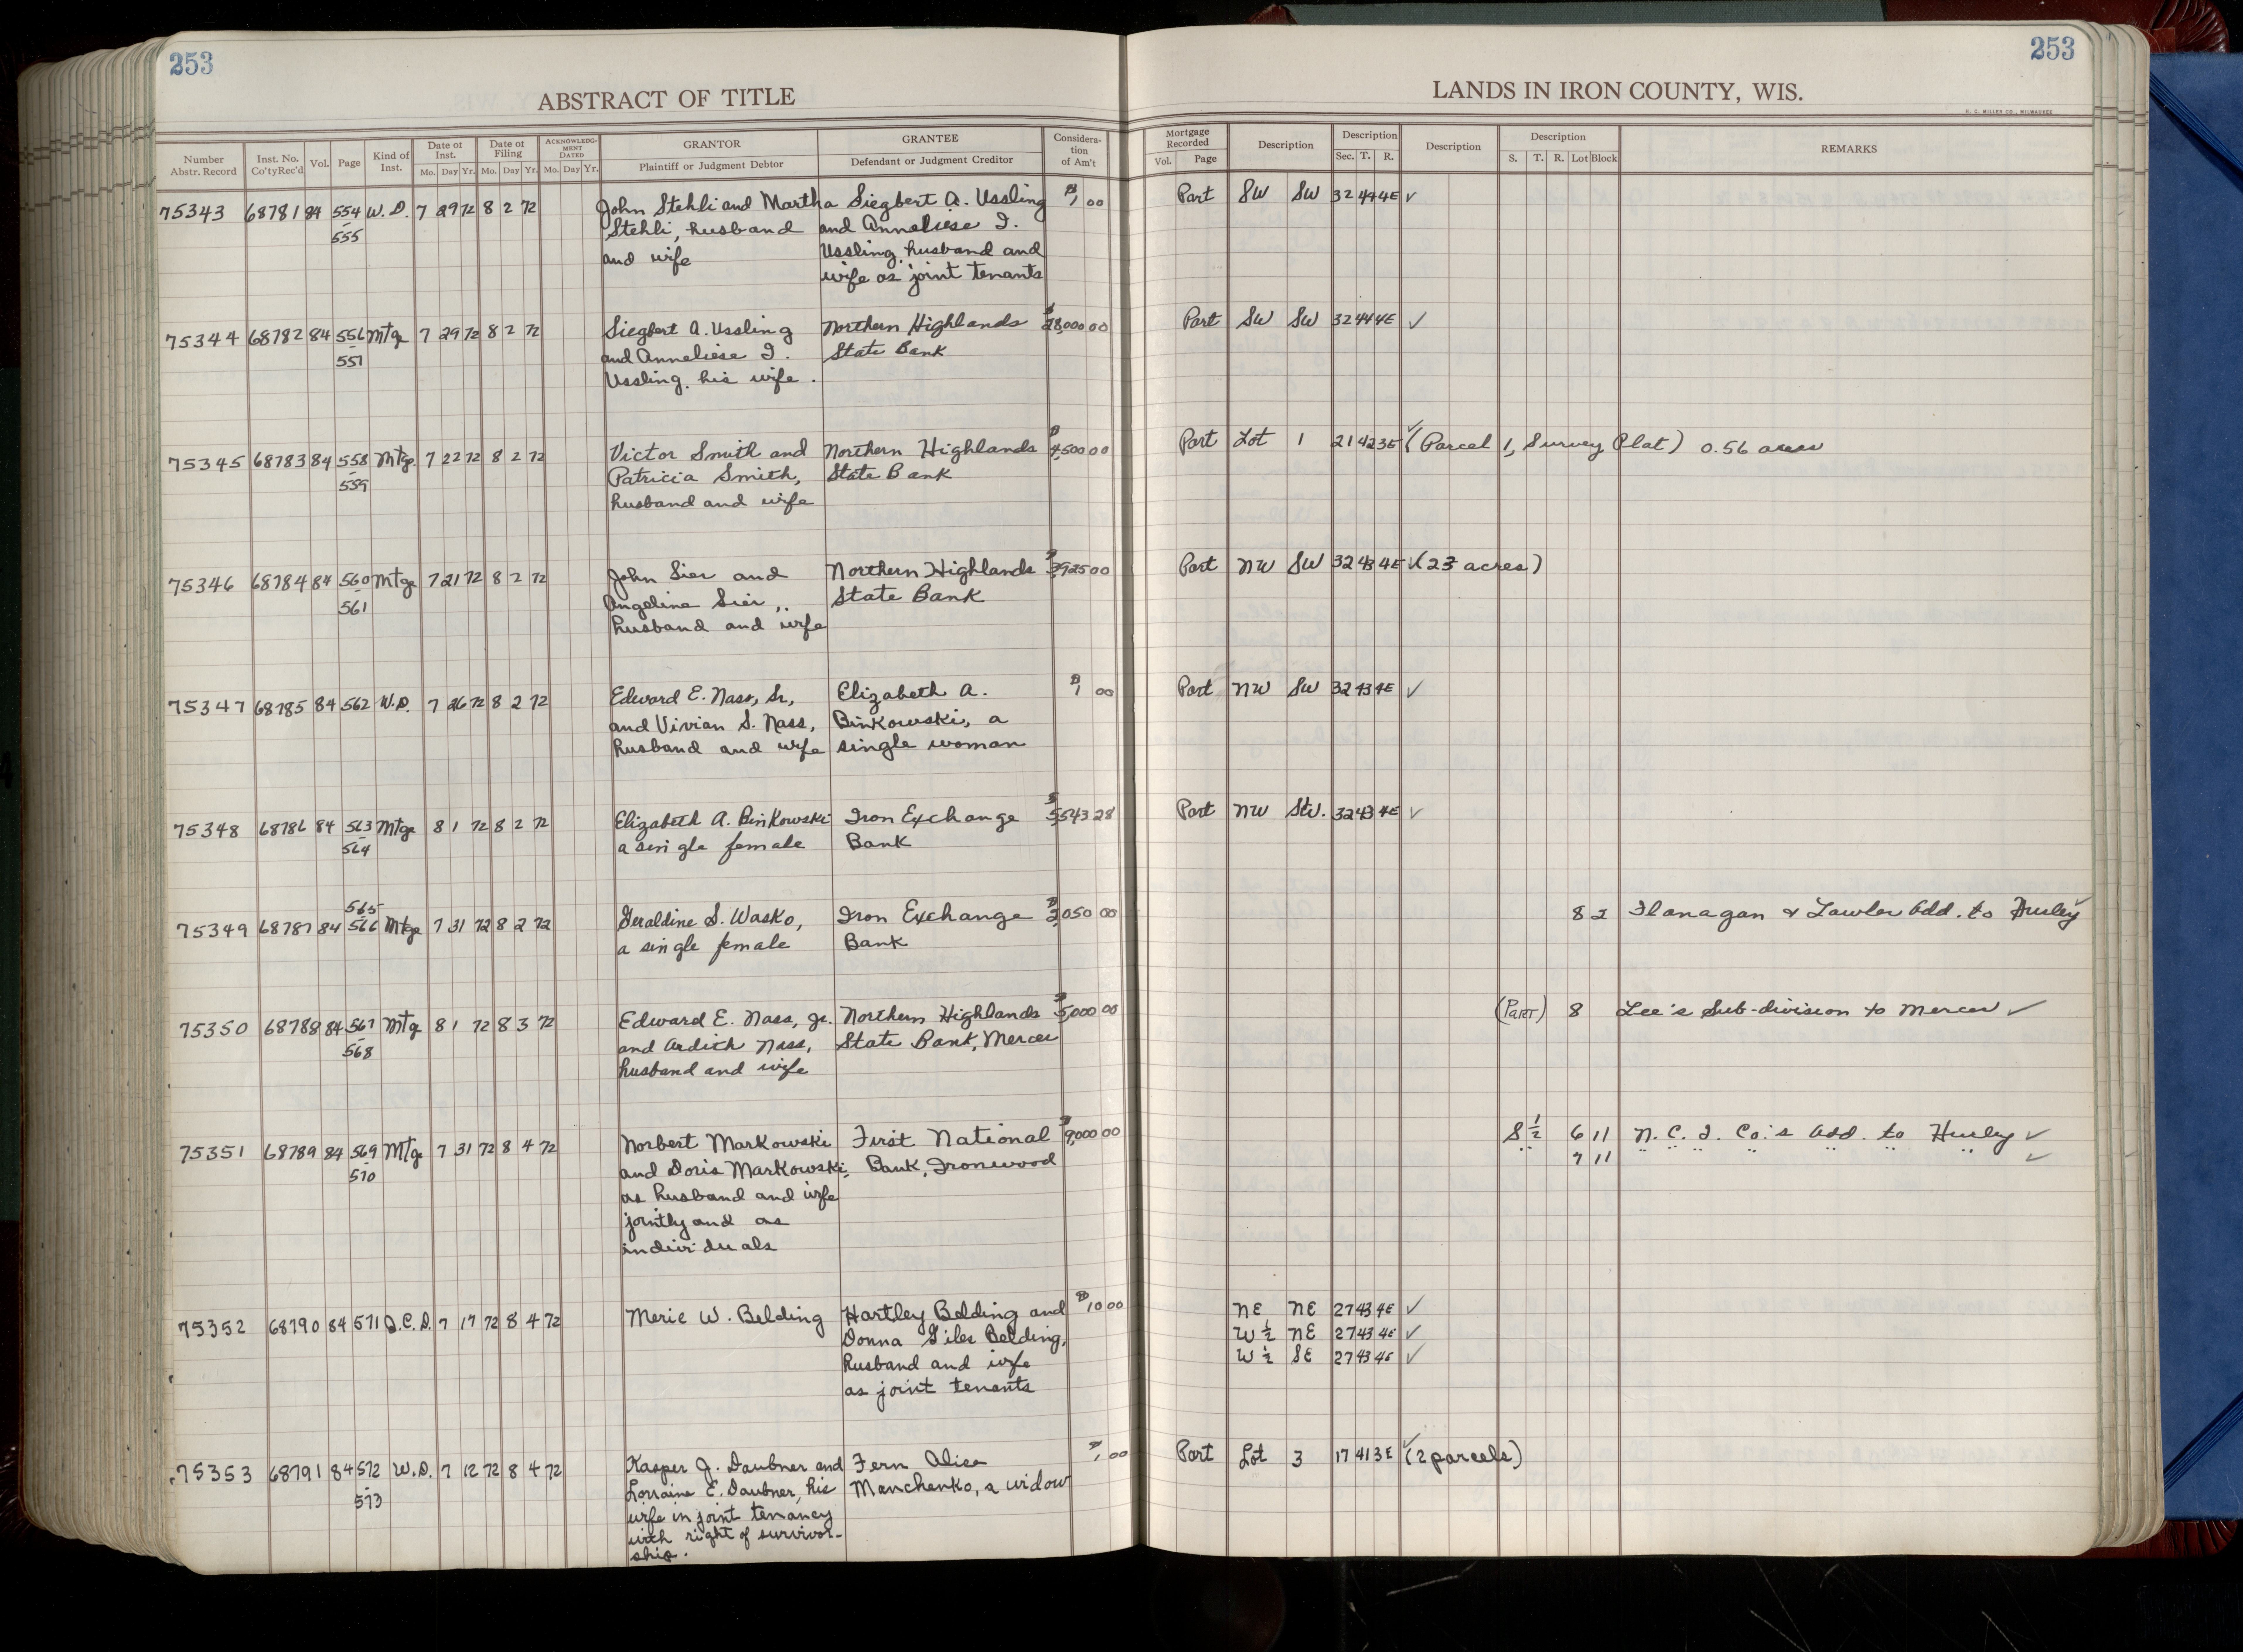 253
253
ABSTRACT OF TITLE
LANDS IN IRON COUNTY, WIS.
H. C. MILLER CO., MILWAUKEE
Number Abstr. Record Inst. No. Co'ty Rec'd Vol. Page Kind of Inst. Date of Inst. Mo. Day Yr. Date of Filing Mo. Day Yr. ACKNOWLEDGMENT DATED Mo. Day Yr. GRANTOR Plaintiff or Judgment Debtor GRANTEE Defendant or Judgment Creditor Considera-tion of Am't
Mortgage Recorded Vol. Page Description Description Sec. T. R. Description Description S. T. R. Lot Block REMARKS
75343 68781 84 554 W. D. 7 29 72 8 2 72 John Stehli and Martha Siegbert A. Ussling $1 00 Part SW SW 32 44 4E ✓
- 555 Stehli, husband and Anneliese I.
and wife Ussling, husband and
wife as joint tenants
75344 68782 84 556 Mtge 7 29 72 8 2 72 Siegbert A. Ussling Northern Highlands $28,000 00 Part SW SW 32 44 4E ✓
- 557 and Anneliese I. State Bank
Ussling, his wife.
75345 68783 84 558 Mtge. 7 22 72 8 2 72 Victor Smith and Northern Highlands $4,500 00 Part Lot 1 21 42 3E ✓ (Parcel 1, Survey Plat) 0.56 acres
- 559 Patricia Smith, State Bank
husband and wife
75346 68784 84 560 Mtge 7 21 72 8 2 72 John Sier and Northern Highlands $3925 00 Part NW SW 32 43 4E ✓ (23 acres)
- 561 Angeline Sier, State Bank
husband and wife
75347 68785 84 562 W.D. 7 26 72 8 2 72 Edward E. Nass, Sr., Elizabeth A. $1 00 Part NW SW 32 43 4E ✓
and Vivian S. Nass, Binkowski, a
husband and wife single woman
75348 68786 84 563 Mtge 8 1 72 8 2 72 Elizabeth A. Binkowski Iron Exchange $5,543 28 Part NW SW. 32 43 4E ✓
- 564 a single female Bank
565
75349 68787 84 566 Mtge 7 31 72 8 2 72 Geraldine S. Wasko, Iron Exchange $2,050 00 8 2 Flanagan & Lawler Add. to Hurley ✓
a single female Bank
75350 68788 84 567 Mtg 8 1 72 8 3 72 Edward E. Nass, Jr. Northern Highlands $5,000 00 (PART) 8 Lee's Sub-division to Mercer ✓
- 568 and Ardith Nass, State Bank, Mercer
husband and wife
75351 68789 84 569 Mtg 7 31 72 8 4 72 Norbert Markowski First National $9,000 00 S ½ 6 11 N. C. I. Co.'s Add. to Hurley ✓
- 570 and Doris Markowski Bank, Ironwood " 7 11 " " " " " " ✓
as husband and wife
jointly and as
individuals
75352 68790 84 571 Q.C.D. 7 17 72 8 4 72 Merie W. Belding Hartley Belding and $10 00 NE NE 27 43 4E ✓
Donna Giles Belding, W ½ NE 27 43 4E ✓
husband and wife W ½ SE 27 43 4E ✓
as joint tenants
75353 68791 84 572 W.D. 7 12 72 8 4 72 Kasper J. Daubner and Fern Alice $1 00 Part Lot 3 17 41 3E ✓ (2 parcels)
- 573 Lorraine E. Daubner, his Manchenko, a widow
wife in joint tenancy
with right of survivor-
ship.